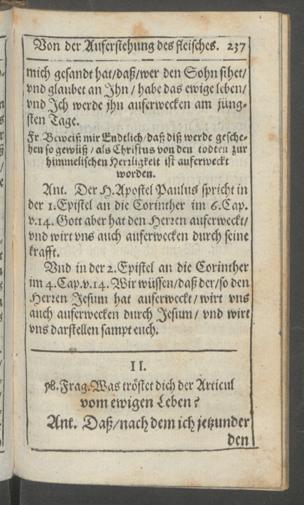 Von der Aufferstehung des fleisches. 237
mich gesandt hat/daß/wer den Sohn sihet/
vnd glaubet an Jhn / habe das ewige leben/
vnd Jch werde jhn auferwecken am jüng-
sten Tage.
Fr. Beweiß mir Endtlich/daß diß werde gesche-
hen so gewiß / als Christus von den todten zur
himmelischen Herrligkeit ist auferweckt
worden.
Ant. Der H. Apostel Paulus spricht in
der 1. Epistel an die Corinther im 6. Cap.
v. 14. Gott aber hat den Herren auferweckt/
vnd wirt vns auch auferwecken durch seine
krafft.
Vnd in der 2. Epistel an die Corinther
im 4. Cap. v. 14. Wir wüssen/daß der/so den
Herren Jesum hat auferweckt/ wirt vns
auch auferwecken durch Jesum / vnd wirt
vns darstellen sampt euch.
II.
58. Frag. Was tröstet dich der Articul
vom ewigen Leben?
Ant. Daß/nach dem ich jetzunder
den